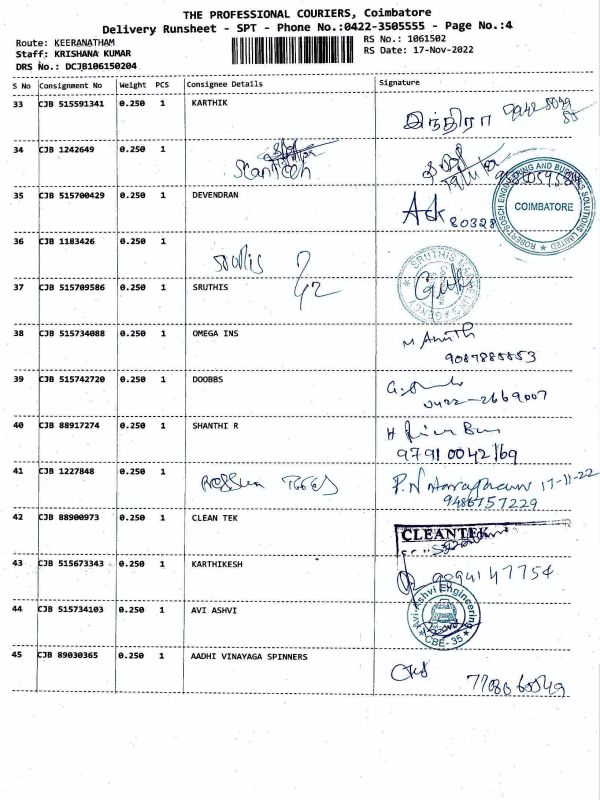 THE PROFESSIONAL COURIERS, Coimbatore
Delivery Runsheet - SPT - Phone No.:0422-3505555 - Page No.:4
Route: KEERANATHAM RS No.: 1061502
Staff: KRISHANA KUMAR RS Date: 17-Nov-2022
DRS No.: DCJB106150204
S No Consignment No Weight PCS Consignee Details Signature
33 CJB 515591341 0.250 1 KARTHIK இந்திரா
34 CJB 1242649 0.250 1
35 CJB 515700429 0.250 1 DEVENDRAN Ack 80328
ROBERTBOSCH ENGINEERING AND BUSINESS SOLUTIONS LIMITED
COIMBATORE
36 CJB 1183426 0.250 1
37 CJB 515709586 0.250 1 SRUTHIS
SRUTHIS
38 CJB 515734088 0.250 1 OMEGA INS
9087888853
39 CJB 515742720 0.250 1 DOOBBS
0422-2669007
40 CJB 88917274 0.250 1 SHANTHI R
97910042169
41 CJB 1227848 0.250 1 17-11-22
9486757229
42 CJB 88900973 0.250 1 CLEAN TEK
CLEANTEK
43 CJB 515673343 0.250 1 KARTHIKESH 9094147754
44 CJB 515734103 0.250 1 AVI ASHVI
Avi-Ashvi Engineering
CBE-35
45 CJB 89030365 0.250 1 AADHI VINAYAGA SPINNERS